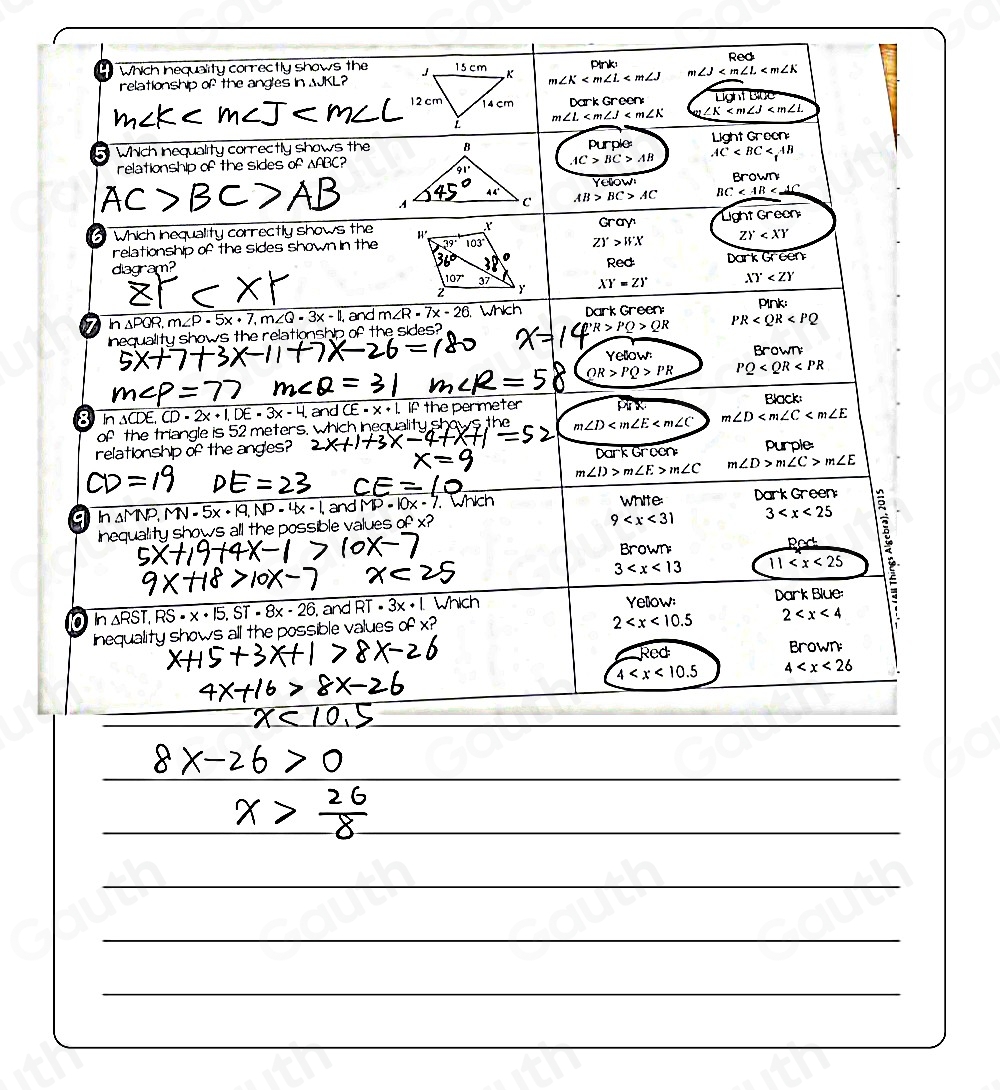 4 Which inequality correctly shows the
relationship of the angles in △JKL?
m∠K < m∠J < m∠L
J 15 cm K
12 cm 14 cm
L
Pink: Red:
m∠K < m∠L < m∠J m∠J < m∠L < m∠K
Dark Green: Light Blue:
m∠L < m∠J < m∠K m∠K < m∠J < m∠L
5 Which inequality correctly shows the
relationship of the sides of △ABC?
AC > BC > AB
B
91°
A 45° 44° C
Purple: Light Green:
AC > BC > AB AC < BC < AB
Yellow: Brown:
AB > BC > AC BC < AB < AC
6 Which inequality correctly shows the
relationship of the sides shown in the
diagram?
ZY < XY
W X
39° 103°
36° 38°
107° 37°
Z Y
Gray: Light Green:
ZY > WX ZY < XY
Red: Dark Green:
XY = ZY XY < ZY
7 In △PQR, m∠P = 5x + 7, m∠Q = 3x - 11, and m∠R = 7x - 26. Which
inequality shows the relationship of the sides?
5x+7+3x-11+7x-26=180 x=14
m<P=77 m<Q=31 m<R=58
Dark Green: Pink:
PR > PQ > QR PR < QR < PQ
Yellow: Brown:
QR > PQ > PR PQ < QR < PR
8 In △CDE, CD = 2x + 1, DE = 3x - 4, and CE = x + 1. If the perimeter
of the triangle is 52 meters, which inequality shows the
relationship of the angles? 2x+1+3x-4+x+1=52
x=9
CD=19 DE=23 CE=10
Pink: Black:
m∠D < m∠E < m∠C m∠D < m∠C < m∠E
Dark Green: Purple:
m∠D > m∠E > m∠C m∠D > m∠C > m∠E
9 In △MNP, MN = 5x + 19, NP = 4x - 1, and MP = 10x - 7. Which
inequality shows all the possible values of x?
5x+19+4x-1 > 10x-7
9x+18>10x-7 x<25
White: Dark Green:
9 < x < 31 3 < x < 25
Brown: Red:
3 < x < 13 11 < x < 25
10 In △RST, RS = x + 15, ST = 8x - 26, and RT = 3x + 1. Which
inequality shows all the possible values of x?
x+15+3x+1 > 8x-26
4x+16 > 8x-26
x<10.5
Yellow: Dark Blue:
2 < x < 10.5 2 < x < 4
Red: Brown:
4 < x < 10.5 4 < x < 26
(All Things Algebra), 2015
8x-26 > 0
x > 26/8
Gauth